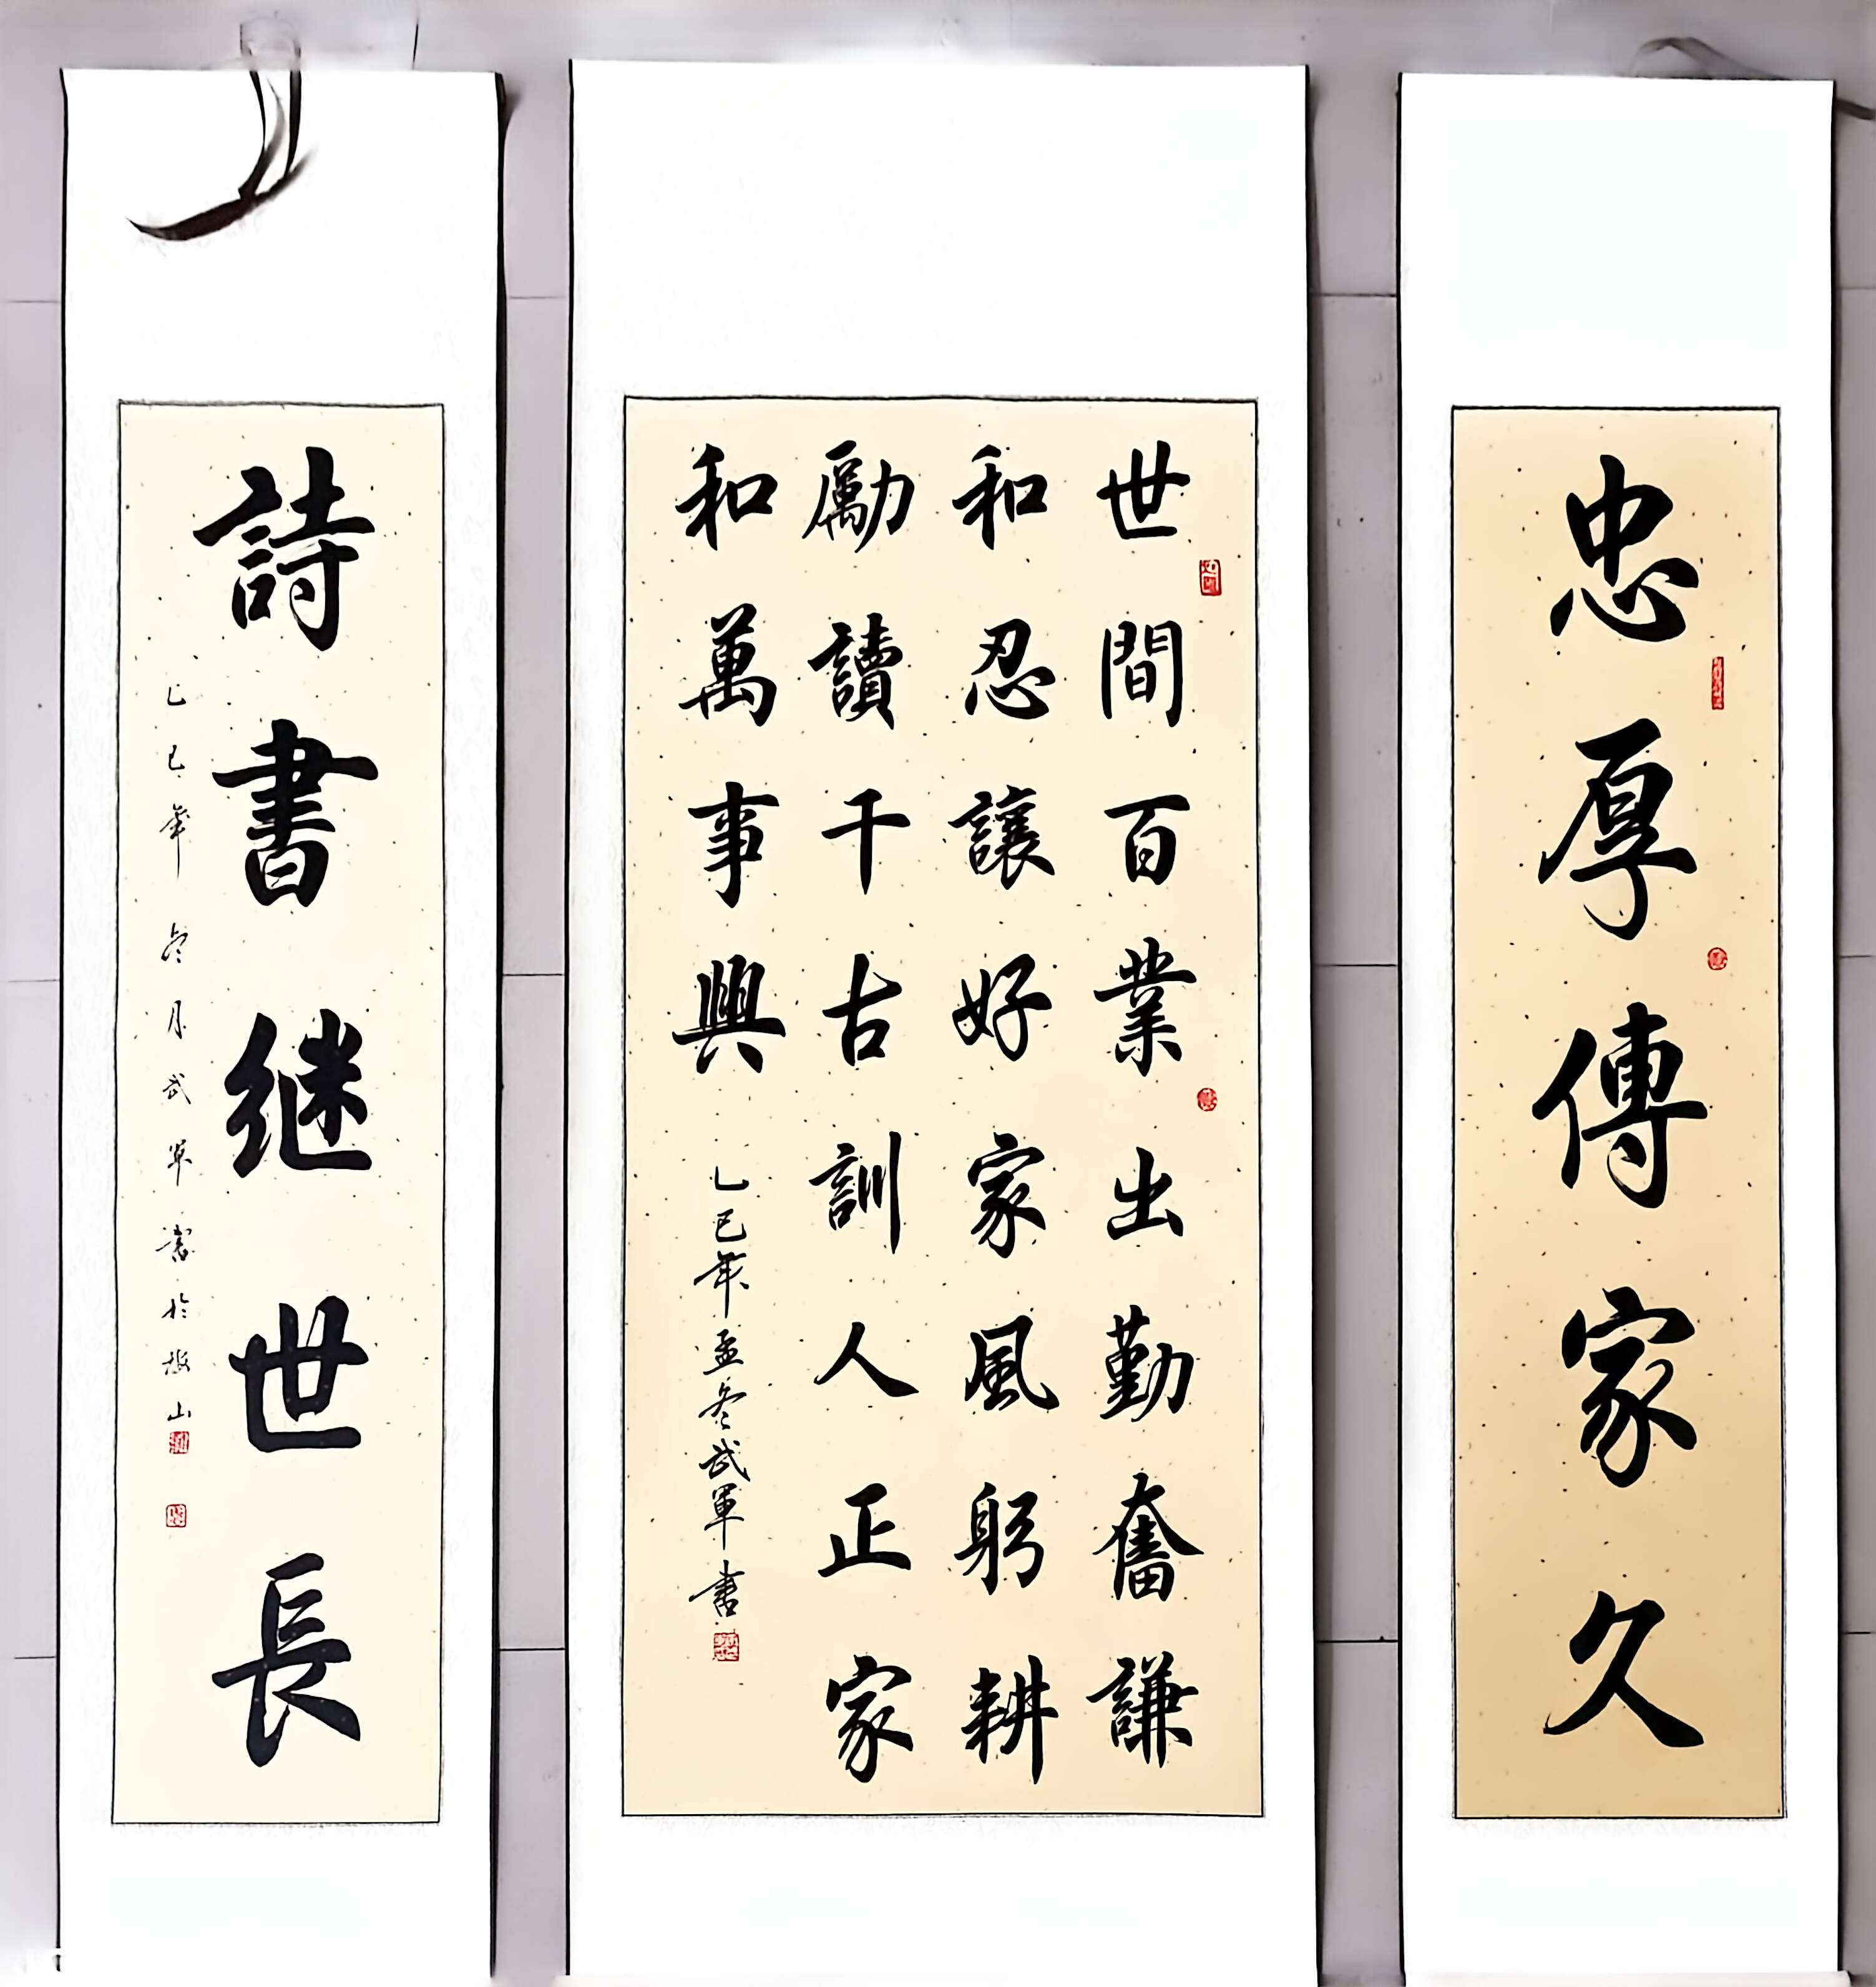 忠厚傳家久
世間百業出勤奮謙
和忍讓好家風躬耕
勵讀千古訓人正家
和萬事興
乙巳年孟冬武軍書
詩書继世長
乙巳年冬月武軍書於山